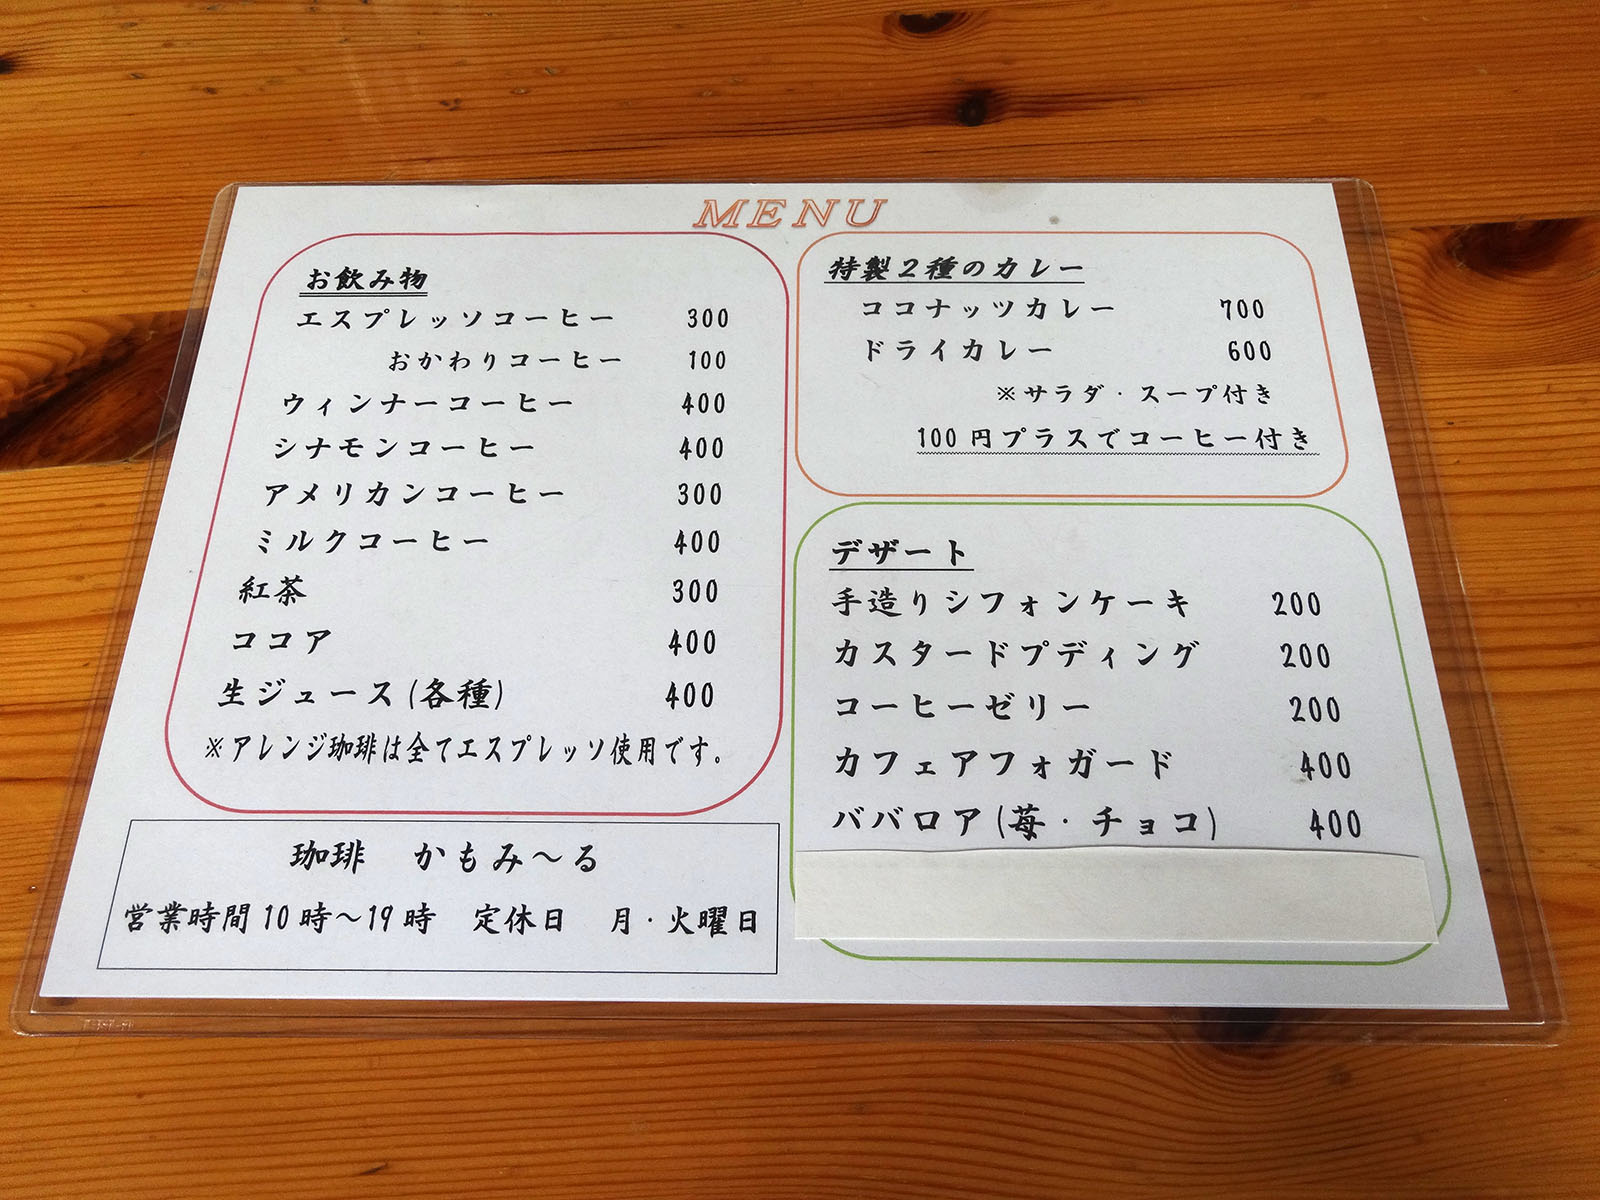 MENU
お飲み物
エスプレッソコーヒー 300
おかわりコーヒー 100
ウィンナーコーヒー 400
シナモンコーヒー 400
アメリカンコーヒー 300
ミルクコーヒー 400
紅茶 300
ココア 400
生ジュース(各種) 400
※アレンジ珈琲は全てエスプレッソ使用です。
珈琲 かもみ～る
営業時間10時～19時 定休日 月・火曜日
特製2種のカレー
ココナッツカレー 700
ドライカレー 600
※サラダ・スープ付き
100円プラスでコーヒー付き
デザート
手造りシフォンケーキ 200
カスタードプディング 200
コーヒーゼリー 200
カフェアフォガード 400
ババロア(苺・チョコ) 400